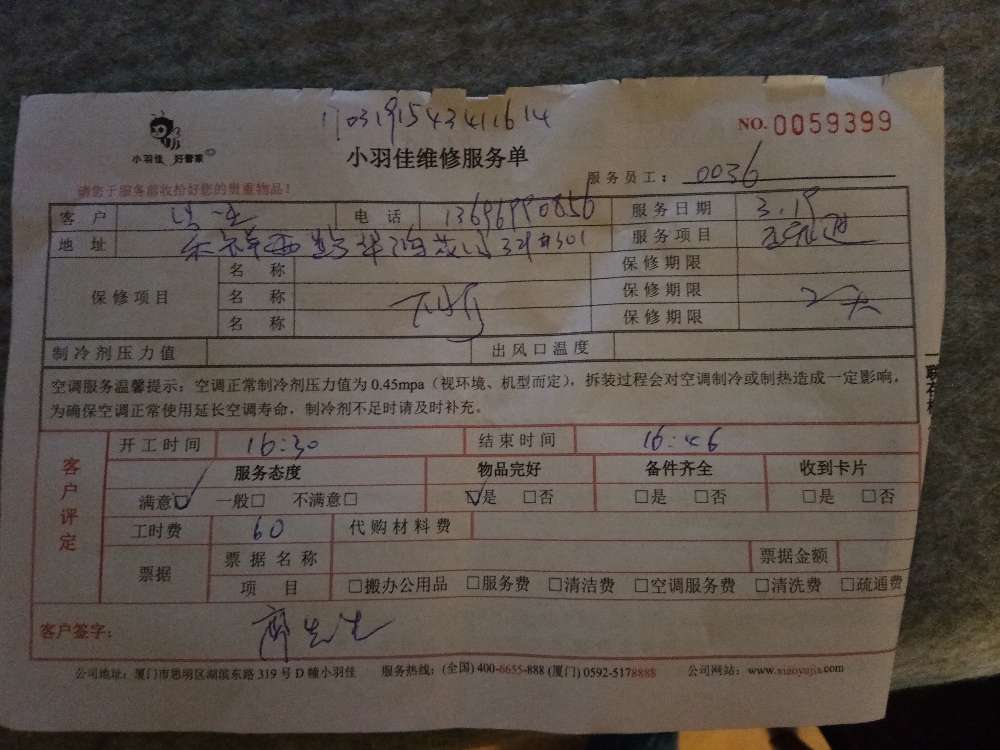 1703191543411614
NO. 0059399
小羽佳 好管家
小羽佳维修服务单
服务员工： 0036
请您于服务前收拾好您的贵重物品！
客户 电话 13696990856 服务日期 3.19
地址 服务项目
保修项目 名称 保修期限
名称 保修期限
名称 保修期限
制冷剂压力值 出风口温度
空调服务温馨提示：空调正常制冷剂压力值为 0.45mpa（视环境、机型而定），拆装过程会对空调制冷或制热造成一定影响，
为确保空调正常使用延长空调寿命，制冷剂不足时请及时补充。
开工时间 16:30 结束时间 16:46
客户评定
服务态度 物品完好 备件齐全 收到卡片
满意☑ 一般□ 不满意□ ☑是 □否 □是 □否 □是 □否
工时费 60 代购材料费
票据 票据名称 票据金额
项目 □搬办公用品 □服务费 □清洁费 □空调服务费 □清洗费 □疏通费
客户签字： 先生
公司地址：厦门市思明区湖滨东路 319 号 D 幢小羽佳 服务热线：(全国) 400-6655-888 (厦门) 0592-5178888 公司网站：www.xiaoyujia.com